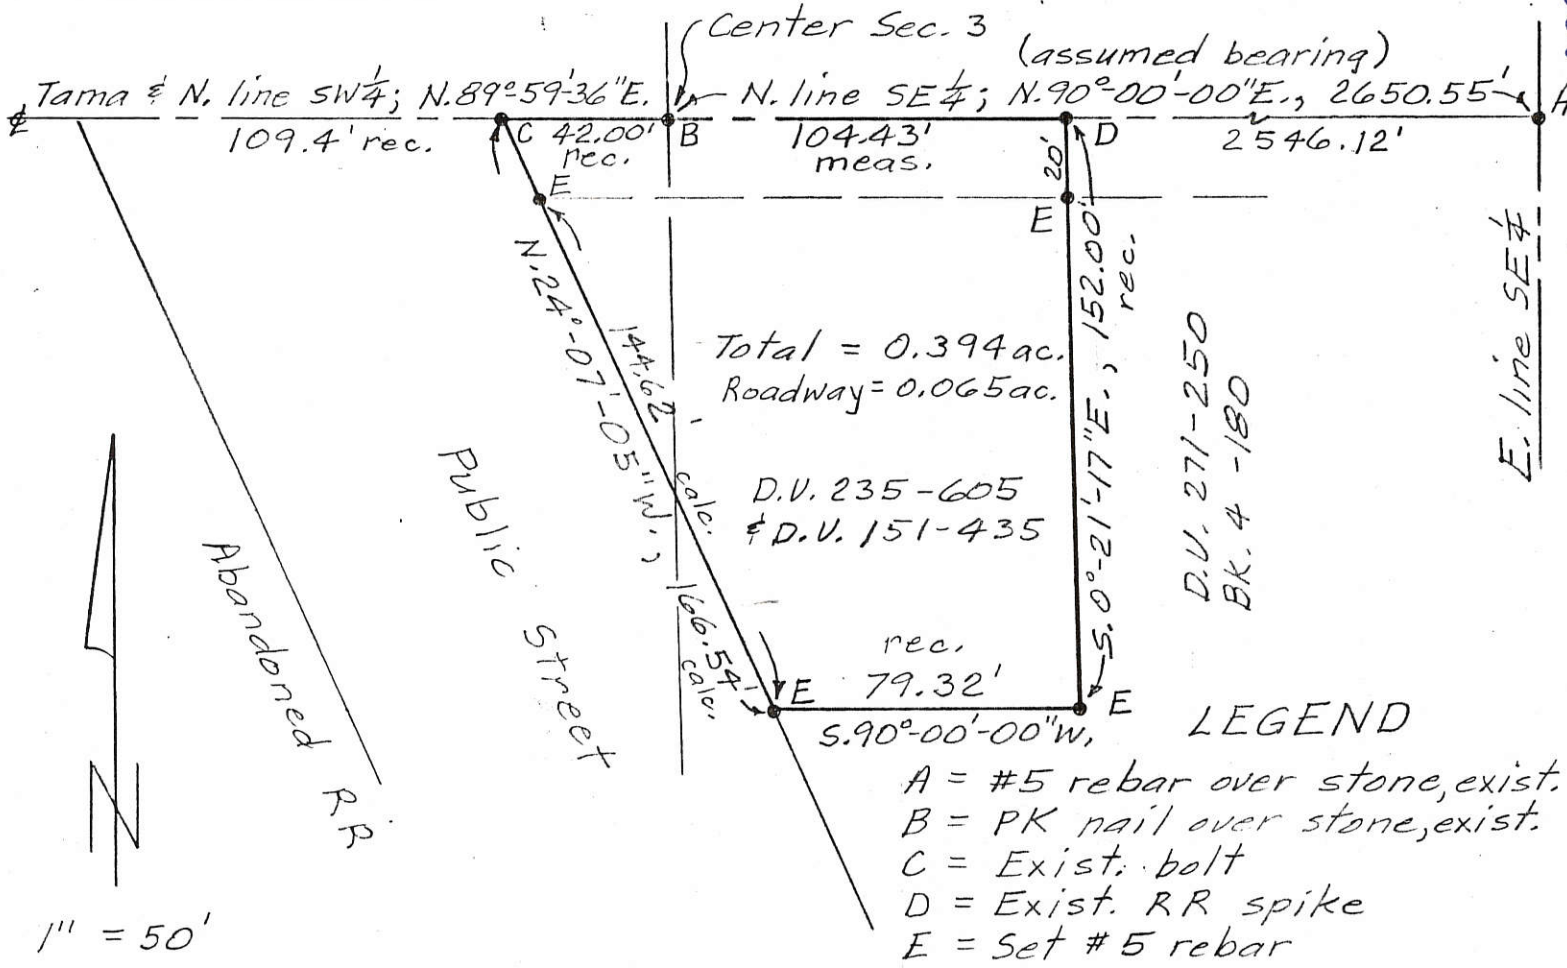 Center Sec. 3
(assumed bearing)
Tama & N. line SW¼; N.89°-59'-36"E.
N. line SE¼; N.90°-00'-00"E., 2650.55'
A
℄
109.4' rec.
C
42.00'
rec.
B
104.43'
meas.
D
2546.12'
20'
E
E
N.24°-07'-05"W.,
144.62' calc.
166.54'
calc.
S.0°-21'-17"E., 152.00'
rec.
Total = 0.394 ac.
Roadway = 0.065 ac.
D.V. 235-605
& D.V. 151-435
D.V. 271-250
BK. 4-180
E. line SE¼
Public Street
Abandoned RR
N
rec.
79.32'
E
E
S.90°-00'-00"W.
1" = 50'
LEGEND
A = #5 rebar over stone, exist.
B = PK nail over stone, exist.
C = Exist. bolt
D = Exist. RR spike
E = Set #5 rebar